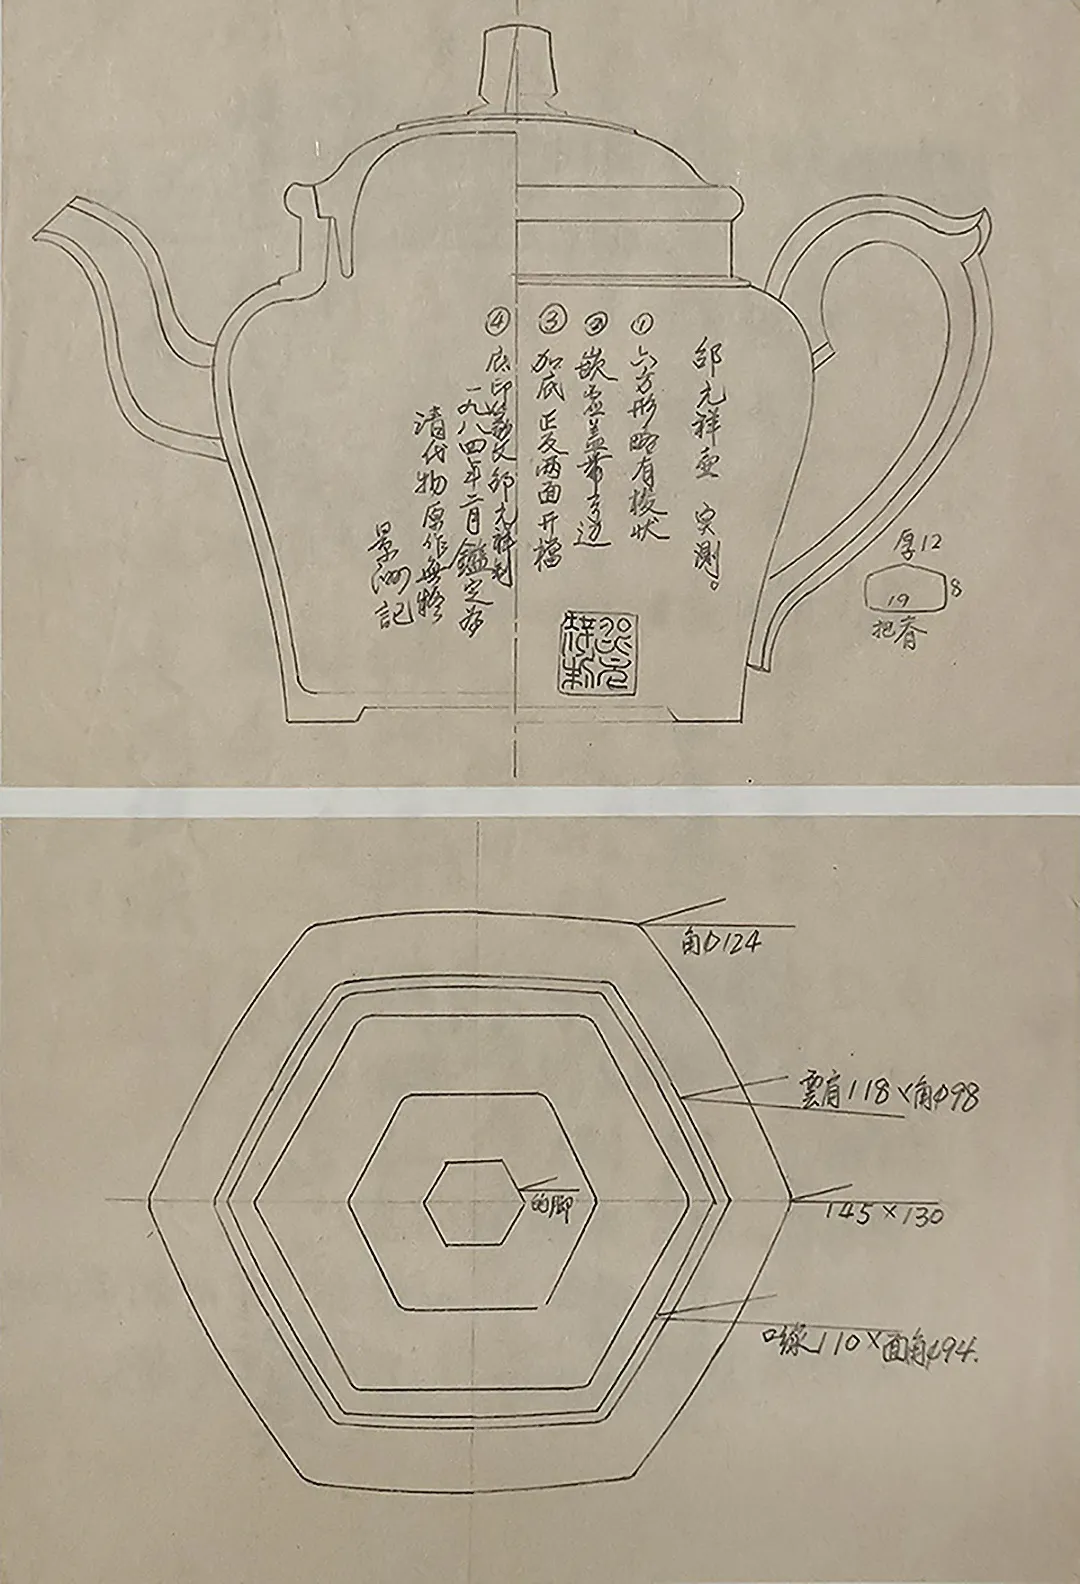 邵元祥壶 实测。
①六方形略有棱状
②嵌盖
③加底 正反两面开檔
④底印篆文邵元祥制
一九八四年二月鑑定为
清代物原作無
景洲記
厚12
19
8
把脊
邵元祥制
角φ124
雲肩118×角φ98
145×130
的脚
口缐110×面角φ94.